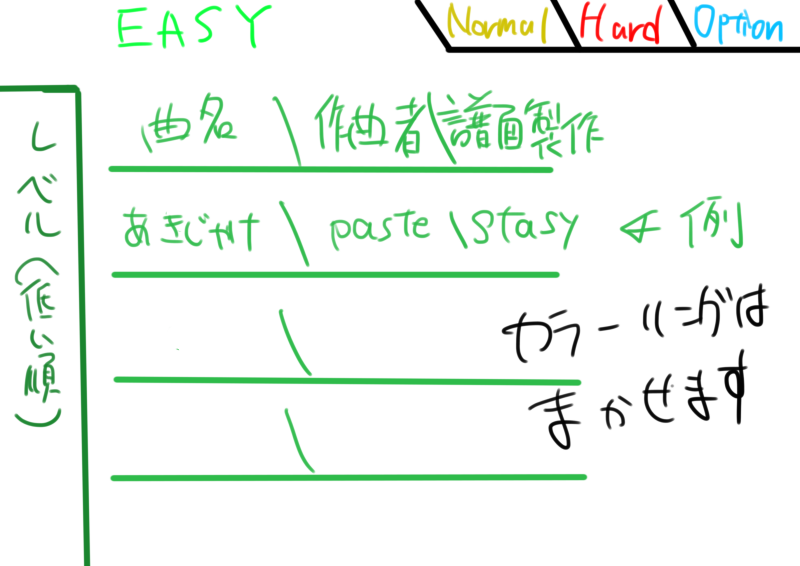 EASY Normal Hard Option
レベル(低い順)
曲名\作曲者\譜面製作
あきじかけ\paste\stasy ←例
\
\
カラーリングは
まかせます